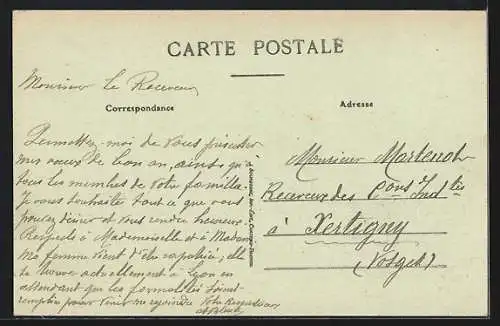 CARTE POSTALE
Monsieur le Receveur
Correspondance
Adresse
Permettez-moi de vous présenter
mes vœux de bon an, ainsi qu'à
tous les membres de votre famille.
Je vous souhaite tout ce que vous
pouvez désirer et vous rendre heureux
Respects à Mademoiselle et à Madame
Ma femme vient d'être rapatriée, elle
se trouve actuellement à Lyon en
attendant que les formalités soient
remplies pour venir me rejoindre Votre
Monsieur Martenot
Receveur des Cons Ind tes
à Xertigny
(Vosges)